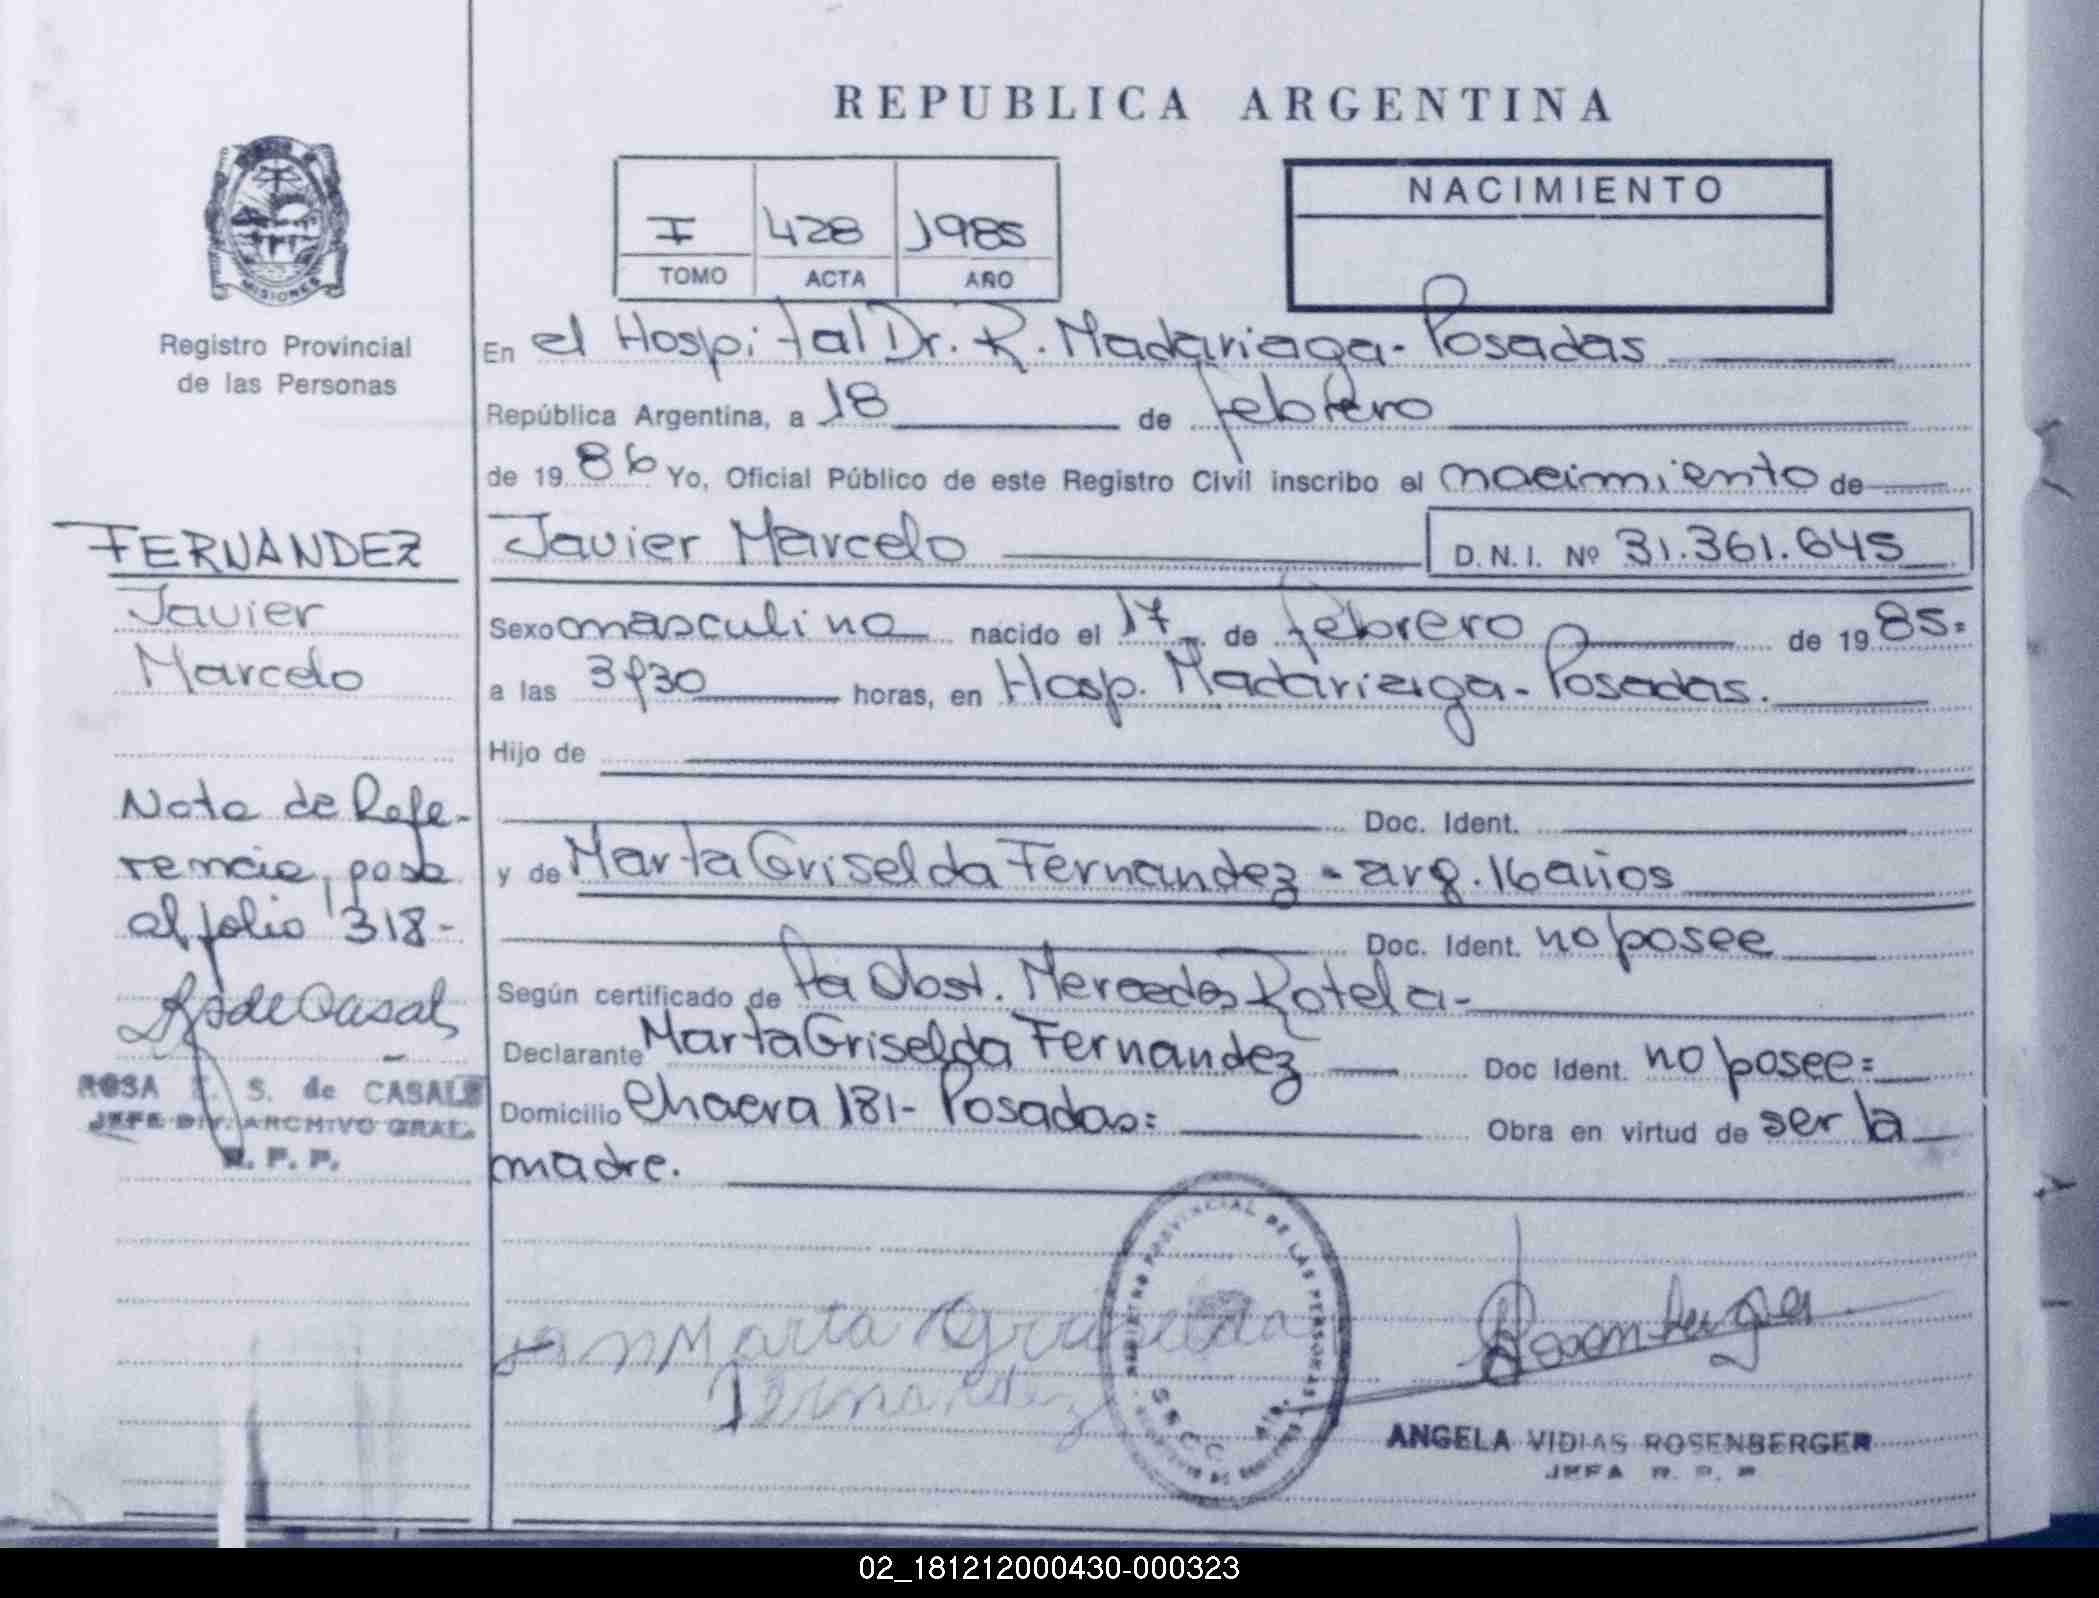 REPUBLICA ARGENTINA
NACIMIENTO
I 428 1985
TOMO ACTA AÑO
MISIONES
Registro Provincial
de las Personas
En el Hospital Dr. R. Madariaga - Posadas
República Argentina, a 18 de febrero
de 1986 Yo, Oficial Público de este Registro Civil inscribo el nacimiento de
FERNANDEZ
Javier
Marcelo
Javier Marcelo D.N.I. Nº 31.361.645
Sexo masculino nacido el 17 de febrero de 1985=
a las 3y30 horas, en Hosp. Madariaga - Posadas.
Hijo de
Doc. Ident.
y de Marta Griselda Fernandez - arg. 16 años
Doc. Ident. no posee
Según certificado de la Obst. Mercedes Rotela-
Declarante Marta Griselda Fernandez Doc Ident. no posee=
Domicilio Chacra 181- Posadas= Obra en virtud de ser la
madre.
Nota de Refe-
rencia, pasa
al folio 318-
ROSA S. de CASALS
JEFE DIV. ARCHIVO GRAL.
R. P. P.
Marta Griselda
Fernandez
REGISTRO PROVINCIAL DE LAS PERSONAS
Rosenberger
ANGELA VIDIAS ROSENBERGER
JEFA R. P. P
02_181212000430-000323